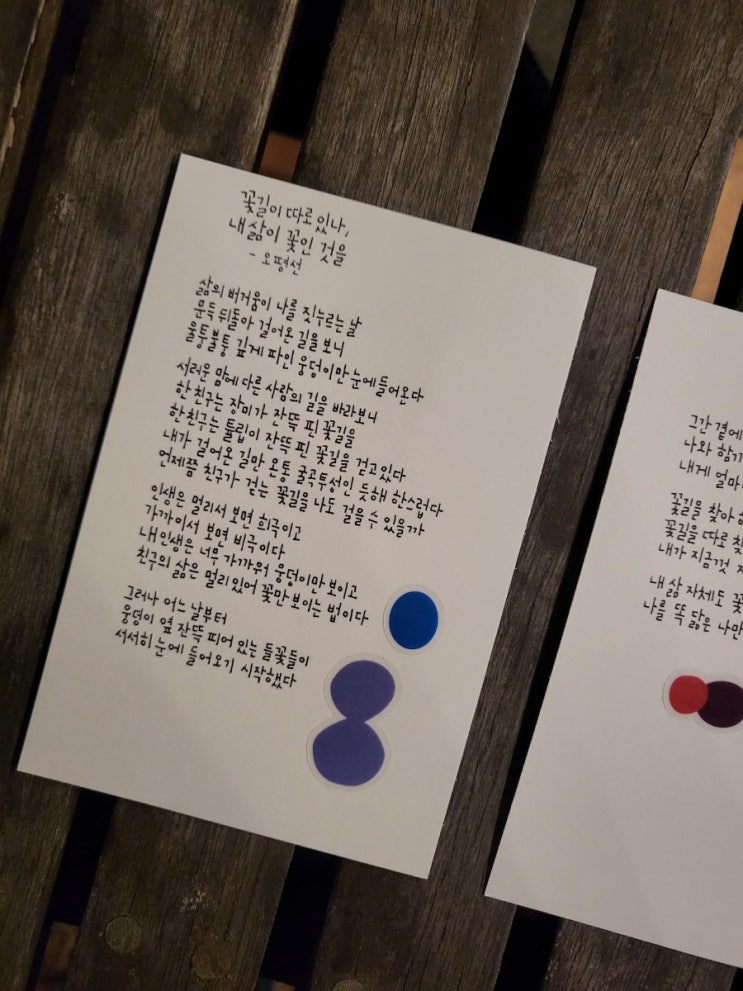 꽃길이 따로 있나,
내 삶이 꽃인 것을
- 오평선
삶의 버거움이 나를 짓누르는 날
문득 뒤돌아 걸어온 길을 보니
울퉁불퉁 깊게 파인 웅덩이만 눈에 들어온다
서러운 맘에 다른 사람의 길을 바라보니
한 친구는 장미가 잔뜩 핀 꽃길을
한 친구는 튤립이 잔뜩 핀 꽃길을 걷고 있다
내가 걸어온 길만 온통 굴곡투성인 듯해 한스럽다
언제쯤 친구가 걷는 꽃길을 나도 걸을 수 있을까
인생은 멀리서 보면 희극이고
가까이서 보면 비극이다
내 인생은 너무 가까워 웅덩이만 보이고
친구의 삶은 멀리 있어 꽃만 보이는 법이다
그러나 어느 날부터
웅덩이 옆 잔뜩 피어 있는 들꽃들이
서서히 눈에 들어오기 시작했다
그간 곁에
나와 함께
내게 얼마
꽃길을 찾아
꽃길을 따로 찾
내가 지금껏
내 삶 자체도 꽃
나를 똑 닮은 나만